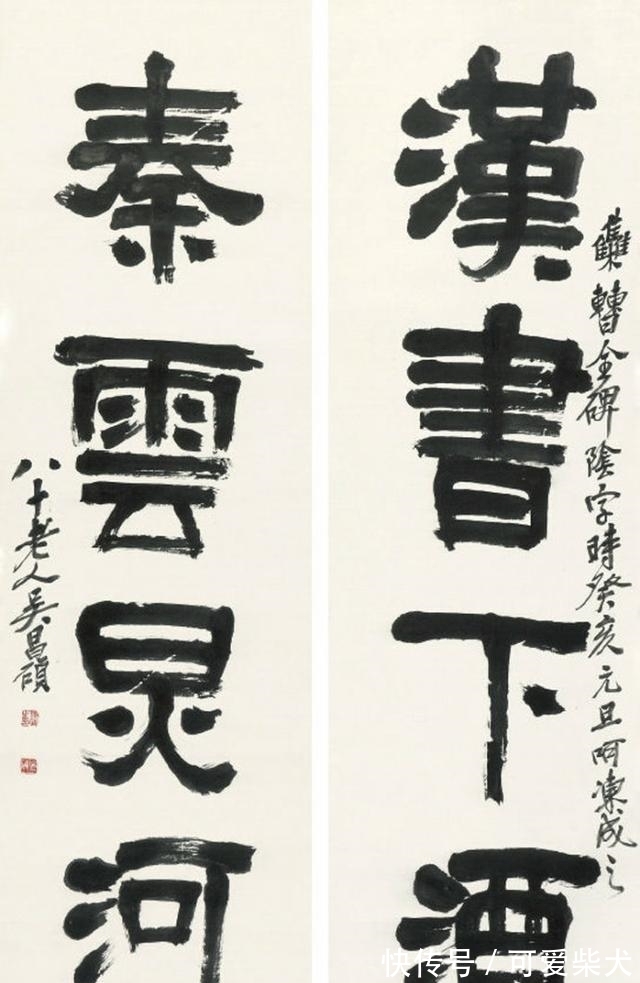 漢書下酒
集曹全碑陰字時癸亥元旦呵凍成之
秦雲炅河
八十老人吳昌碩
快传号 / 可爱柴犬